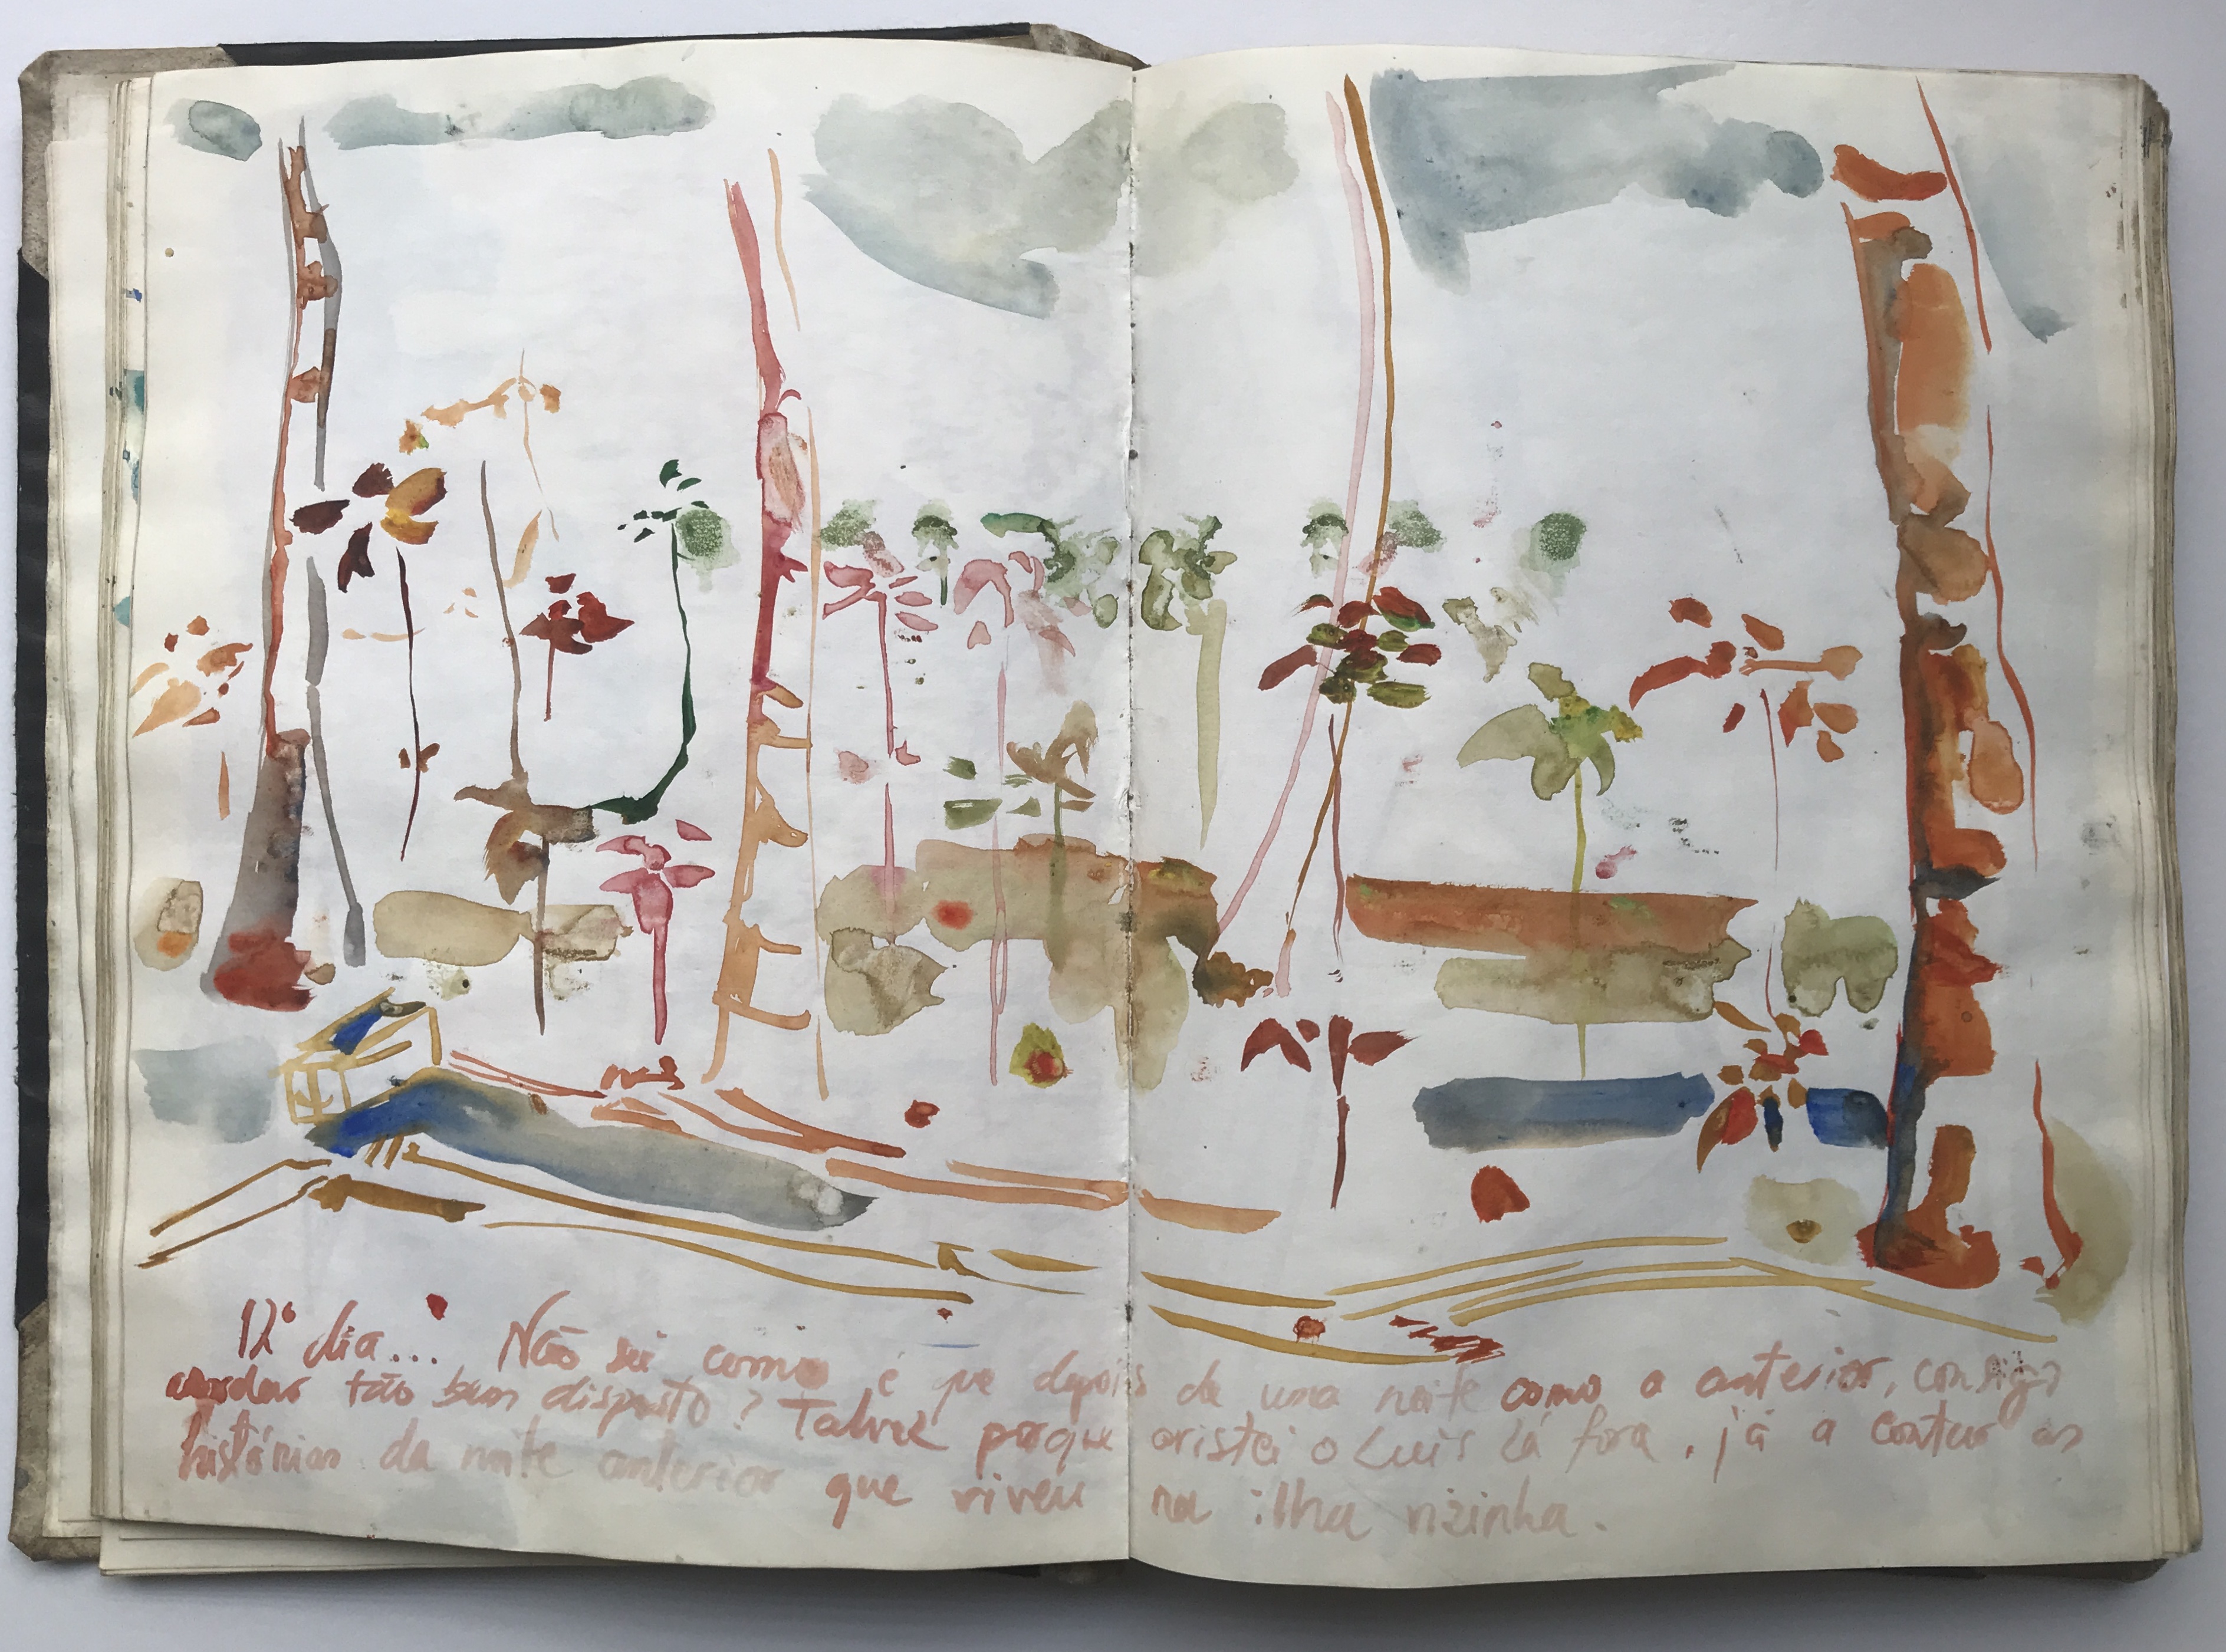 12º dia... Não sei como é que depois de uma noite como a anterior, consigo
acordar tão bem disposto? Talvez porque avistei o Luís lá fora, já a contar as
histórias da noite anterior que viveu na ilha vizinha.